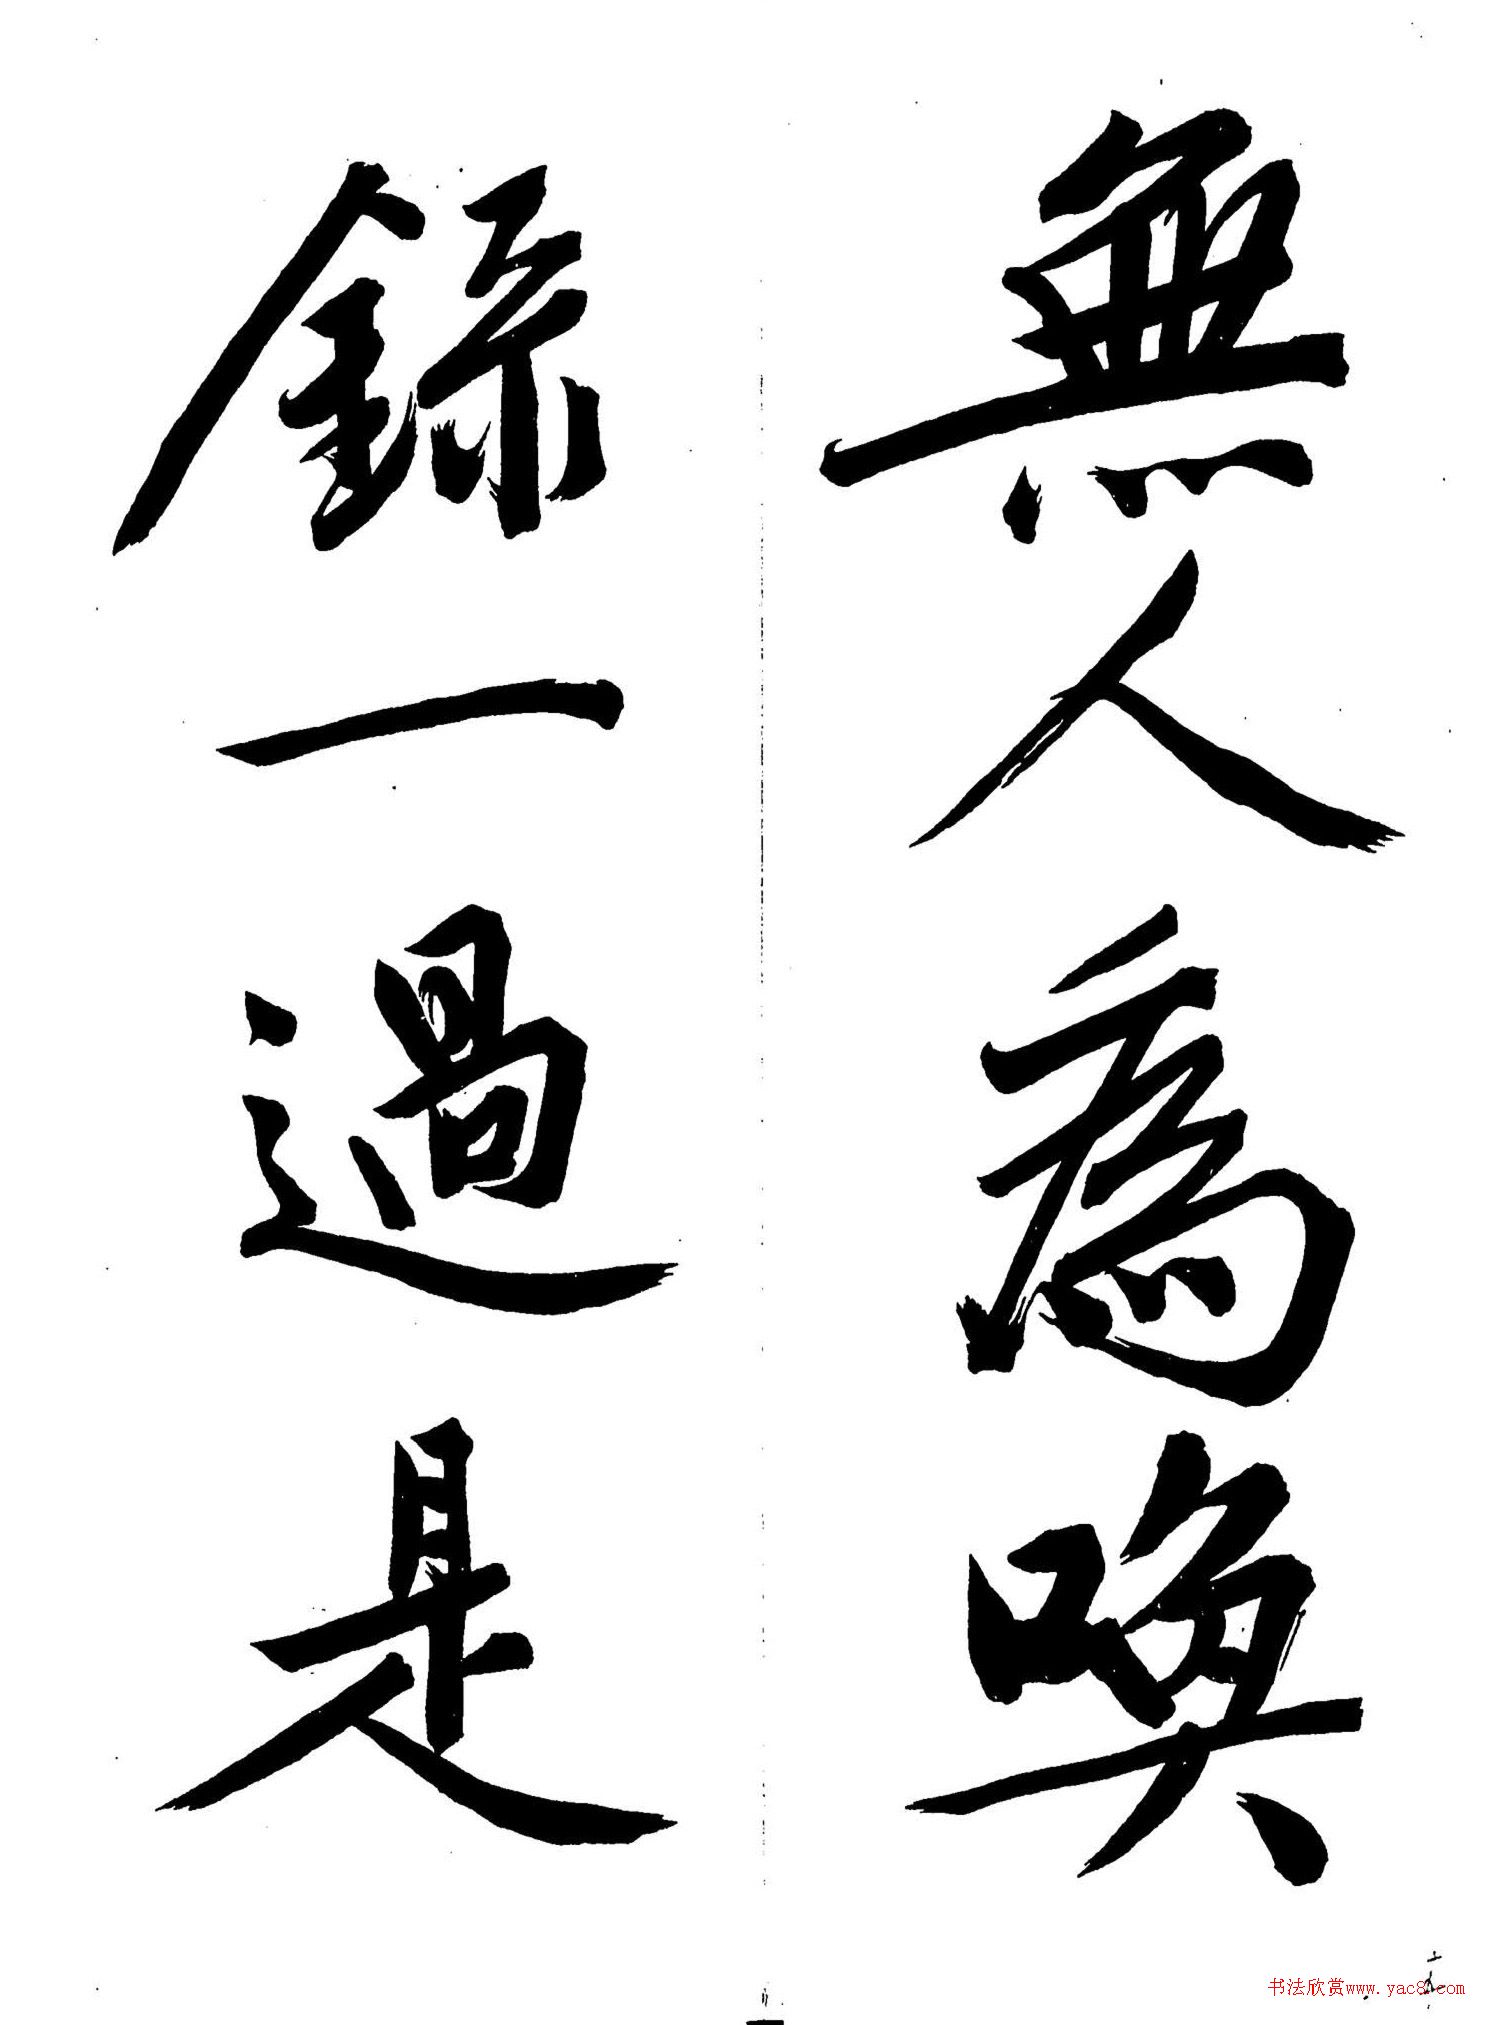 無人為喚
錄一過是
书法欣赏www.yac8.com